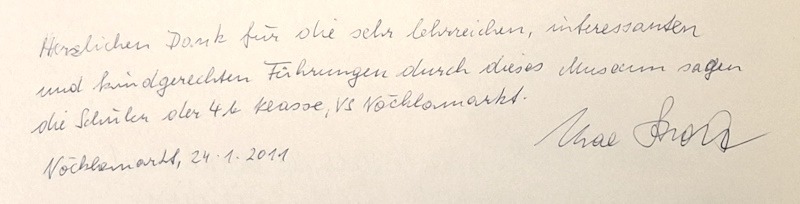 Herzlichen Dank für die sehr lehrreichen, interessanten
und kindgerechten Führungen durch dieses Museum sagen
die Schüler der 4b Klasse, VS Vöcklamarkt.
Vöcklamarkt, 24.1.2011